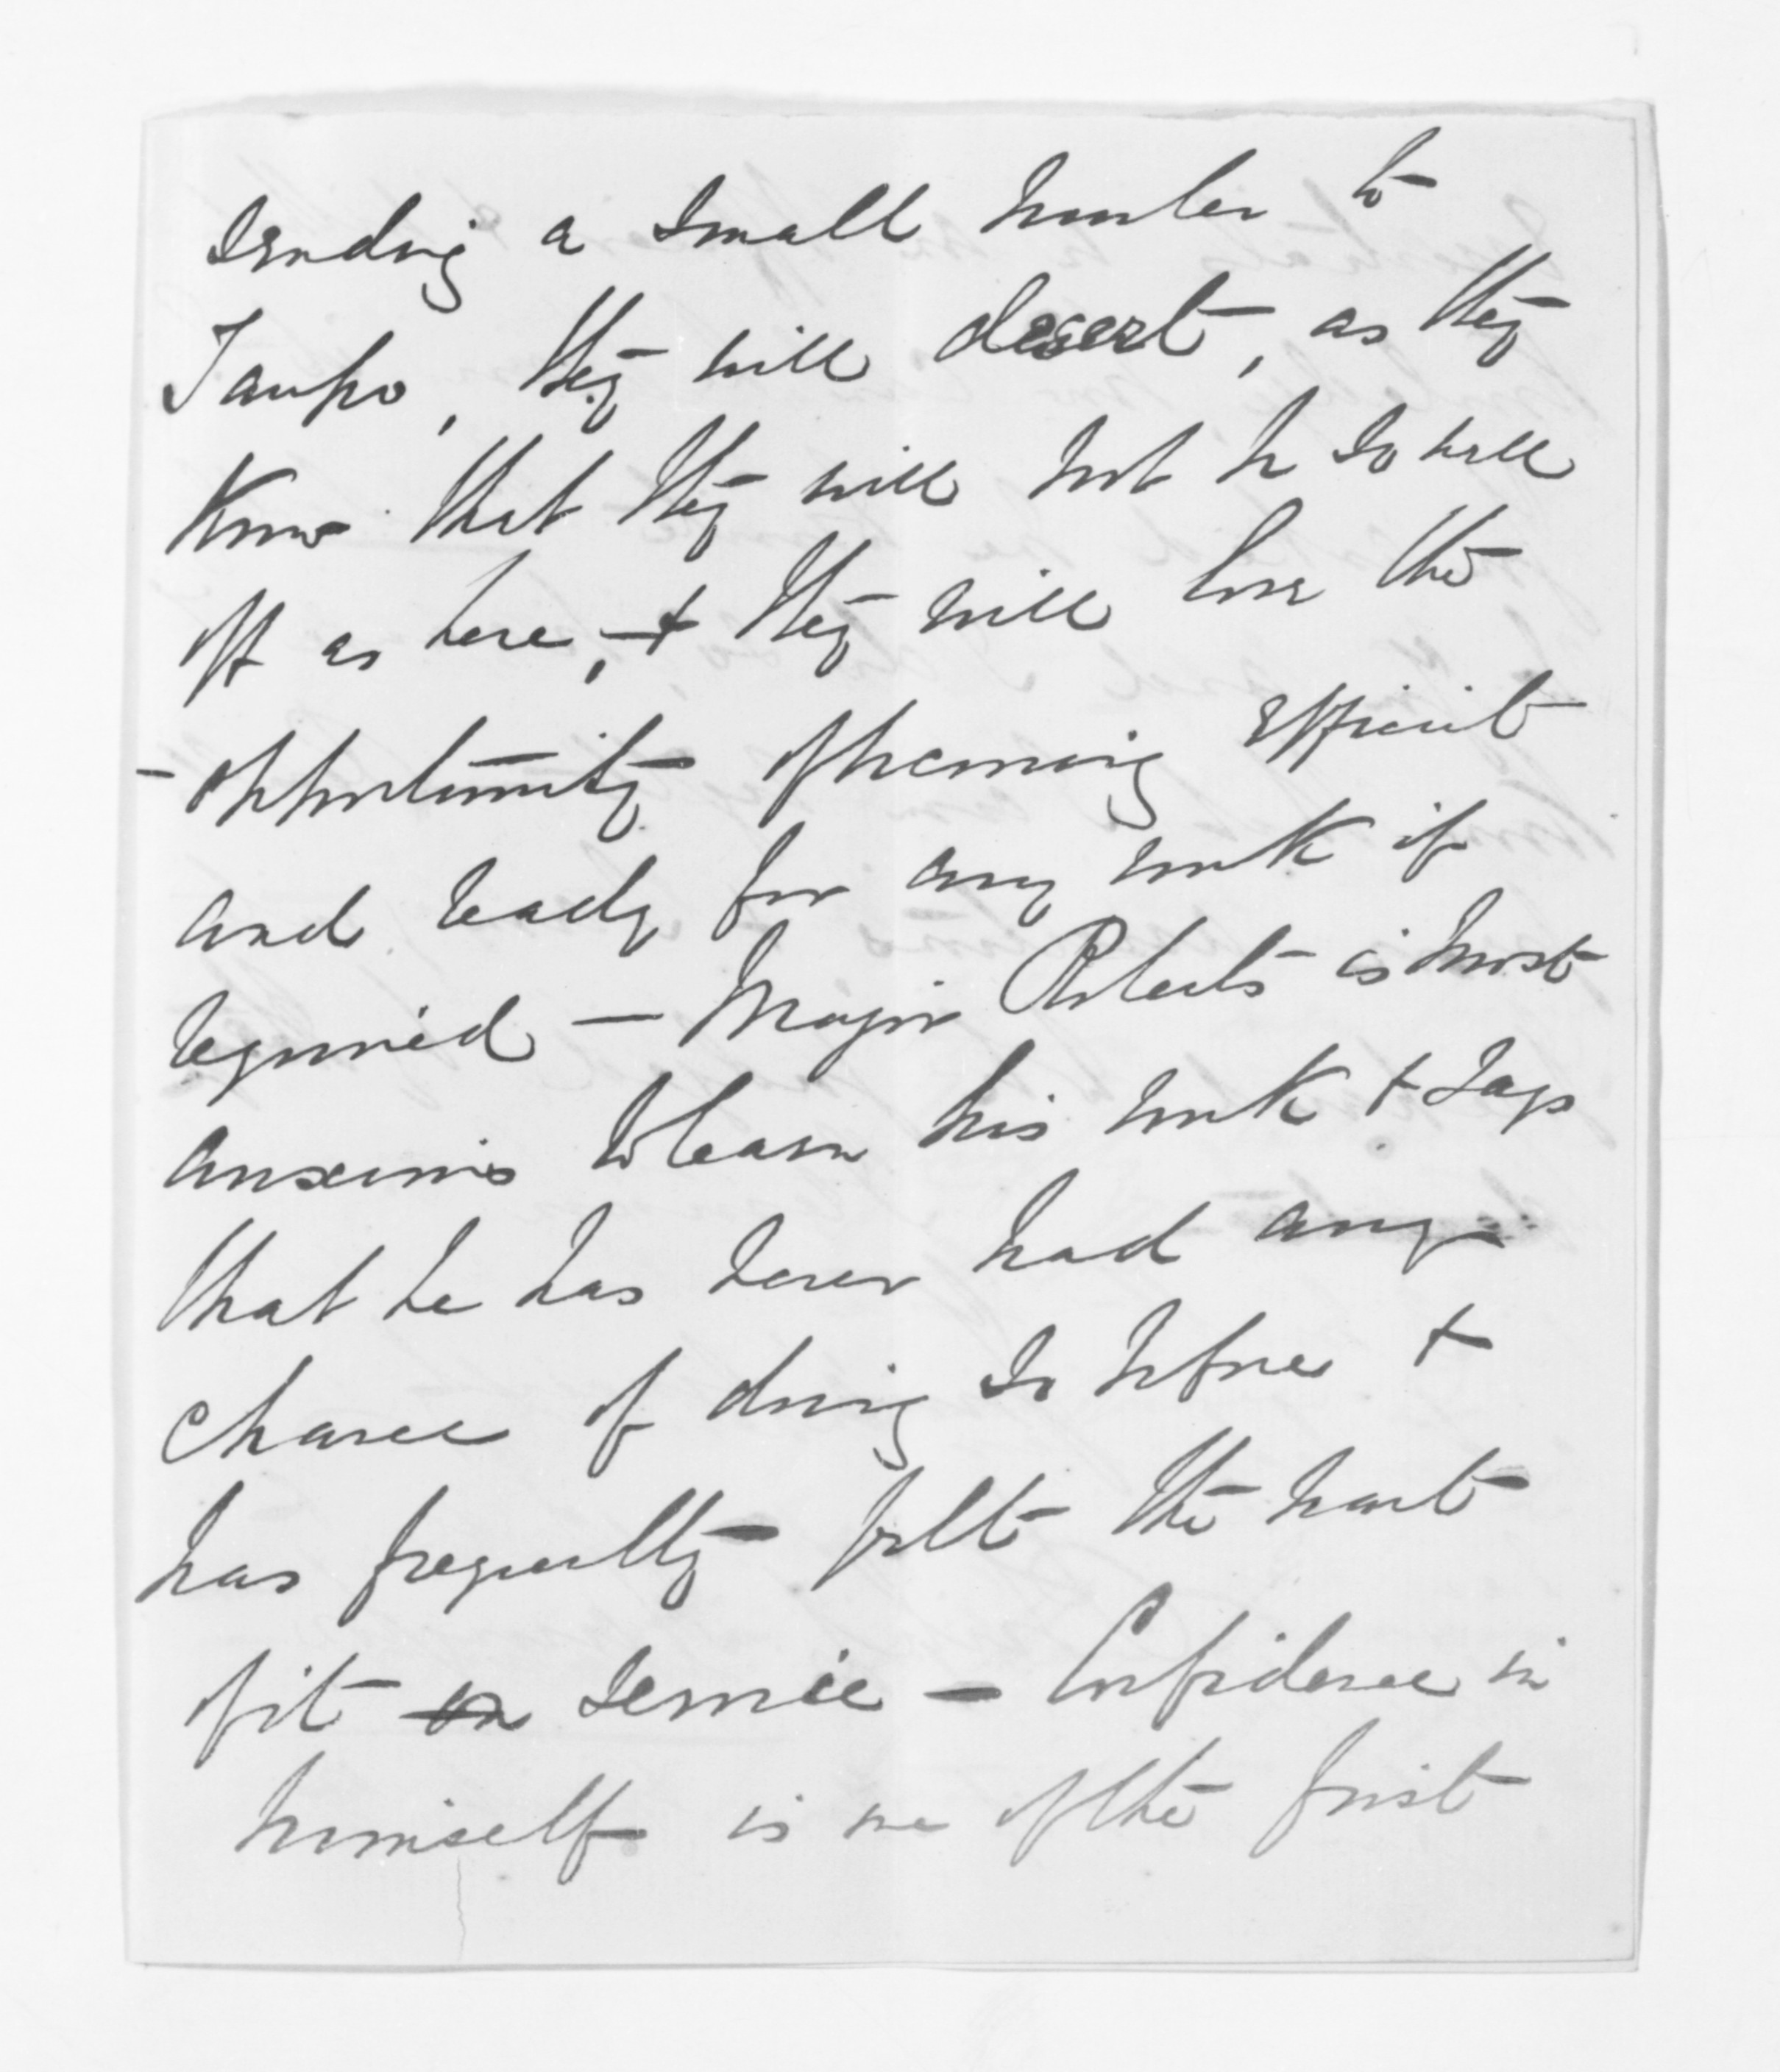 sending a small number to
Taupo, they will desert, as they
Know that they will not be so well
off as here, & they will lose the
opportunity of becoming efficient
and ready for any work if
required — Major Roberts is most
anxious to learn his work & says
that he has never had any
chance of doing so before &
has frequently felt the want
of it on service — Confidence in
himself is one of the first